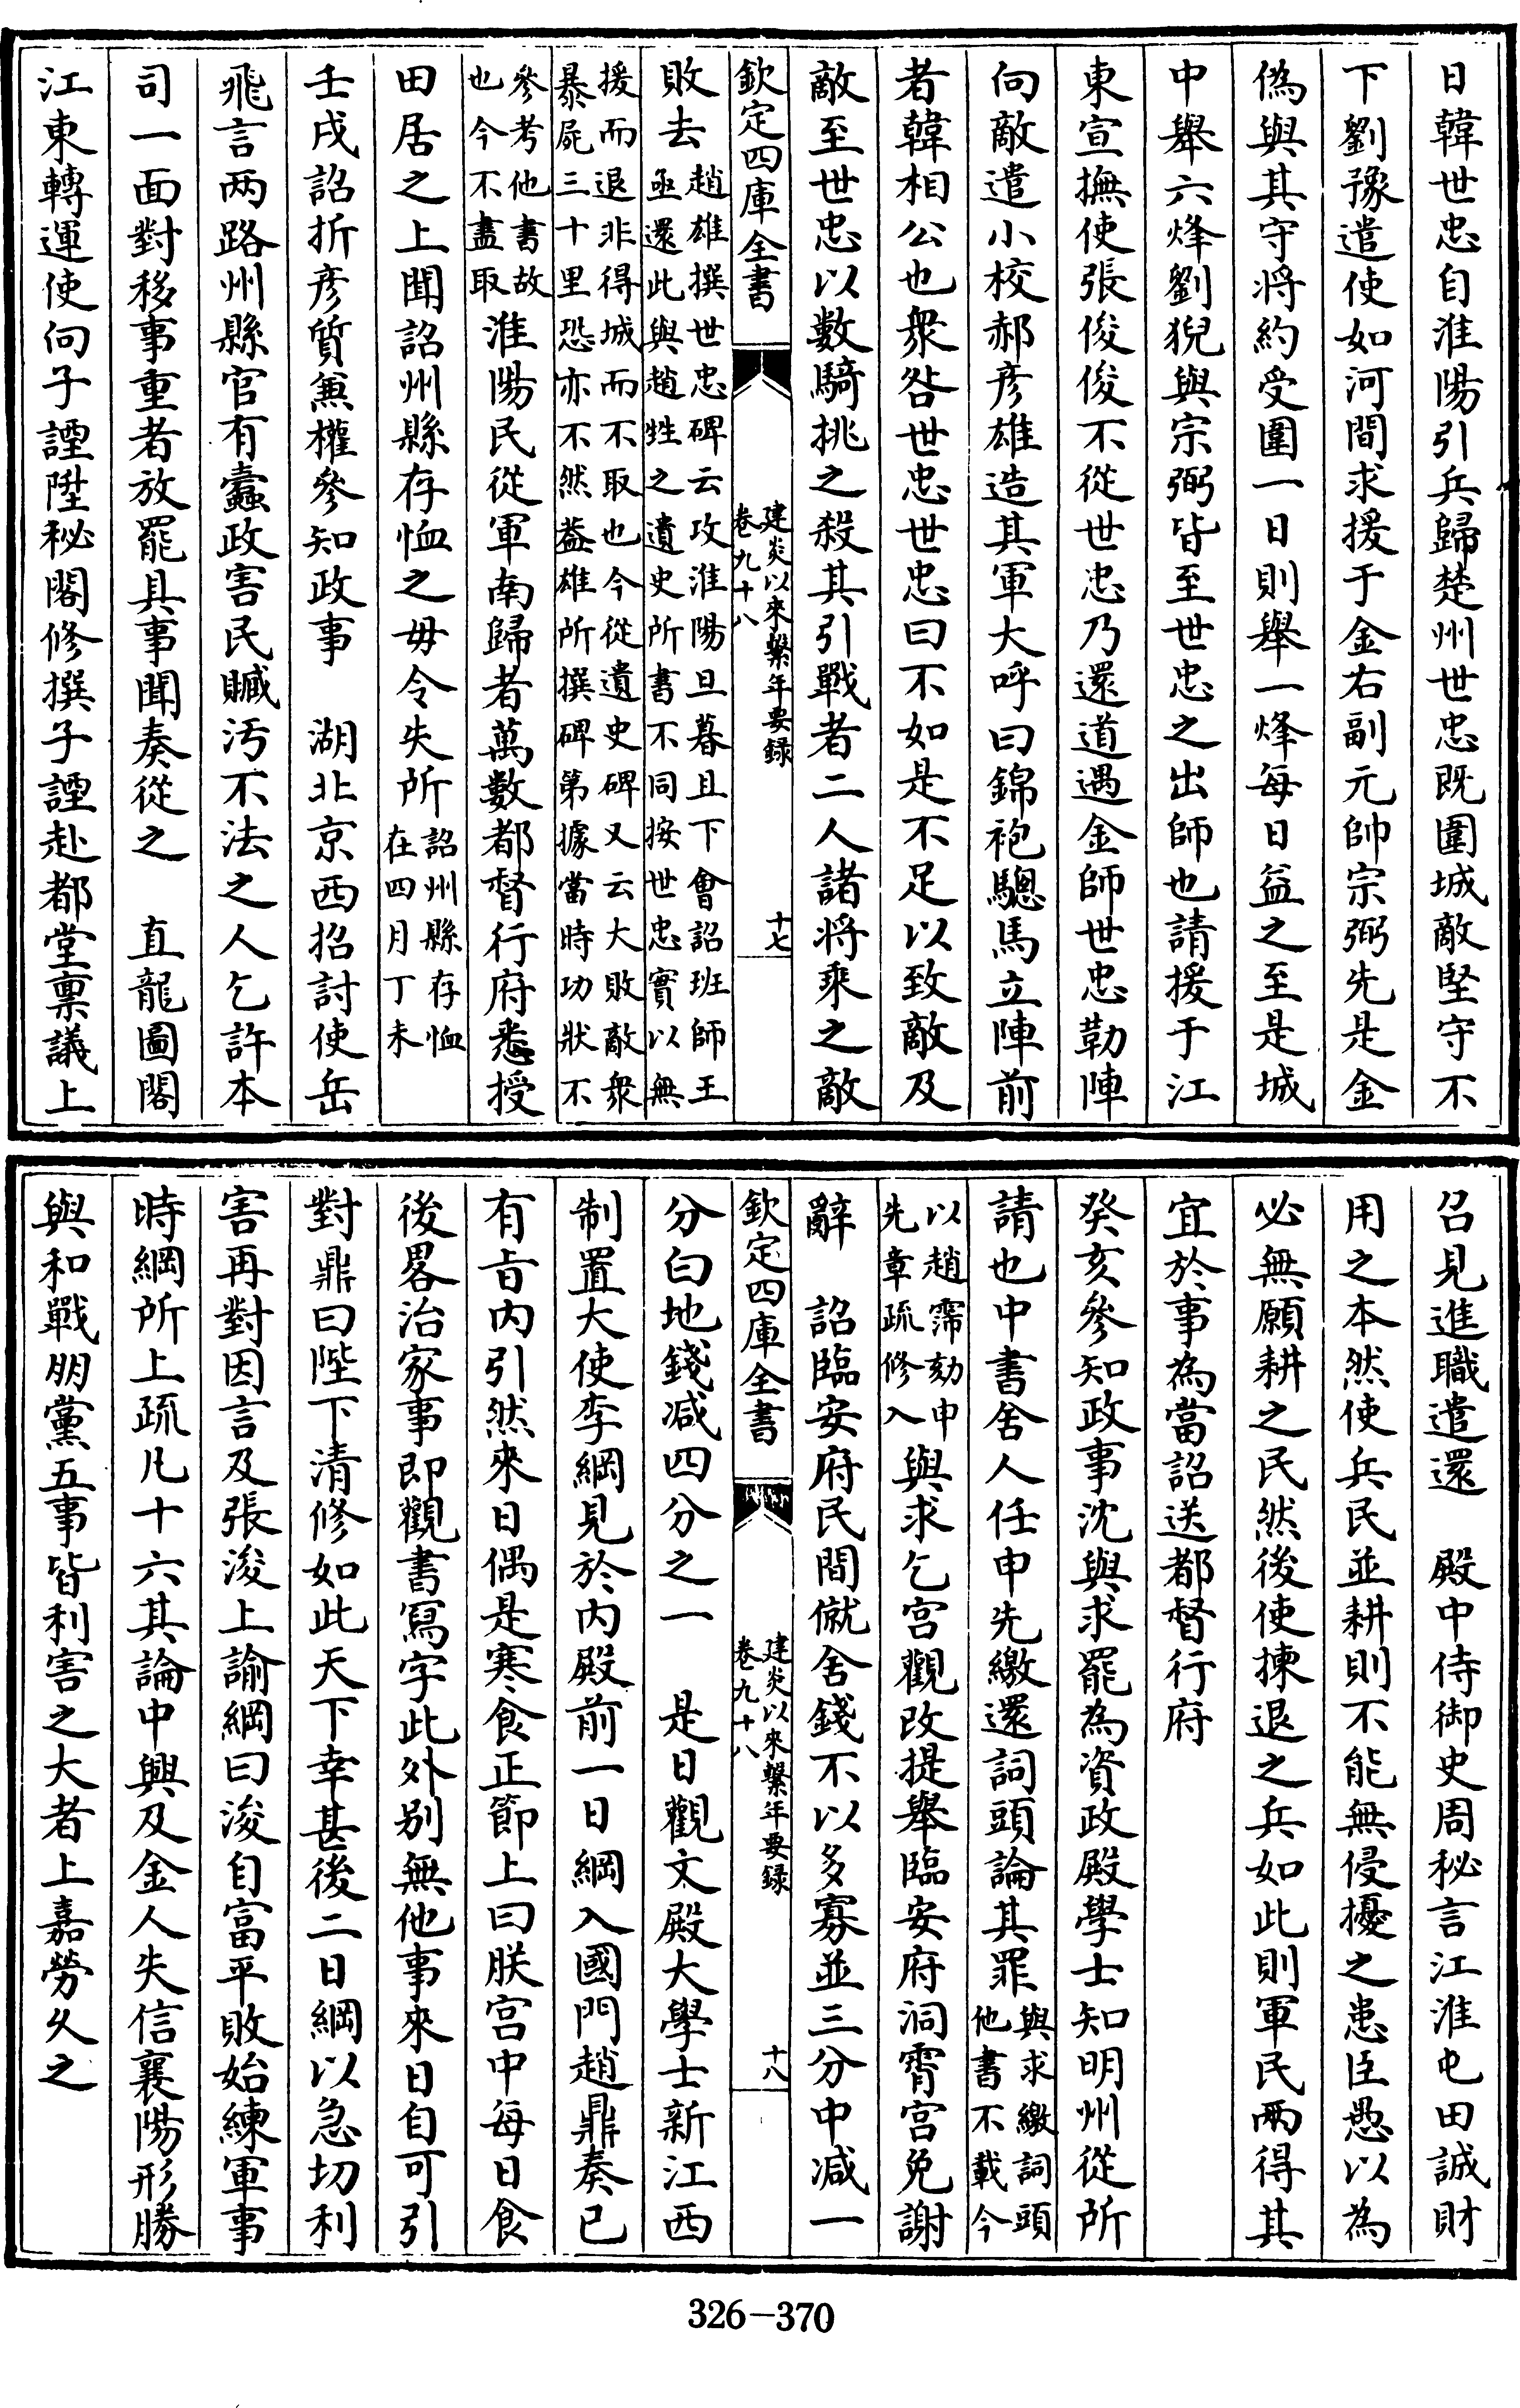 日韓世忠自淮陽引兵歸楚州世忠既圍城敵堅守不
下劉豫遣使如河間求援于金右副元帥宗弼先是金
偽與其守将約受圍一日則舉一烽每日益之至是城
中舉六烽劉猊與宗弼皆至世忠之出師也請援于江
東宣撫使張俊俊不從世忠乃還道遇金師世忠勒陣
向敵遣小校郝彦雄造其軍大呼曰錦袍驄馬立陣前
者韓相公也衆咎世忠世忠曰不如是不足以致敵及
敵至世忠以數騎挑之殺其引戰者二人諸将乘之敵
欽定四庫全書
建炎以來繫年要録
卷九十八
十七
敗去趙雄撰世忠碑云攻淮陽旦暮且下會詔班師王
亟還此與趙甡之遺史所書不同按世忠實以無
援而退非得城而不取也今從遺史碑又云大敗敵衆
暴屍三十里恐亦不然葢雄所撰碑第據當時功狀不
參考他書故
也今不盡取淮陽民從軍南歸者萬數都督行府悉授
田居之上聞詔州縣存恤之毋令失所詔州縣存恤
在四月丁未
壬戌詔折彦質兼權參知政事　湖北京西招討使岳
飛言两路州縣官有蠧政害民贓汚不法之人乞許本
司一面對移事重者放罷具事聞奏從之　直龍圖閣
江東轉運使向子諲陞秘閣修撰子諲赴都堂禀議上
召見進職遣還　殿中侍御史周秘言江淮屯田誠財
用之本然使兵民並耕則不能無侵擾之患臣愚以為
必無願耕之民然後使揀退之兵如此則軍民兩得其
宜於事為當詔送都督行府
癸亥參知政事沈與求罷為資政殿學士知明州從所
請也中書舍人任申先繳還詞頭論其罪與求繳詞頭
他書不載今
以趙霈劾申
先章疏修入與求乞宫觀改提舉臨安府洞霄宫免謝
辭　詔臨安府民間僦舍錢不以多寡並三分中减一
欽定四庫全書
建炎以來繫年要録
卷九十八
十八
分白地錢减四分之一　是日觀文殿大學士新江西
制置大使李綱見於内殿前一日綱入國門趙鼎奏已
有旨内引然來日偶是寒食正節上曰朕宫中每日食
後畧治家事即觀書寫字此外别無他事來日自可引
對鼎曰陛下清修如此天下幸甚後二日綱以急切利
害再對因言及張浚上諭綱曰浚自富平敗始練軍事
時綱所上疏凡十六其論中興及金人失信襄陽形勝
與和戰朋黨五事皆利害之大者上嘉勞久之
326—370